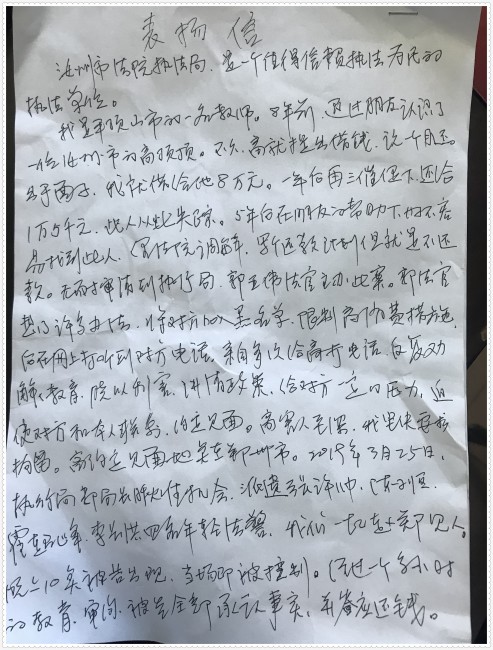 表扬信
汝州市法院执行局,是一个值得信赖执法为民的
执法单位。
我是平顶山市的一名教师。8年前,通过朋友认识了
一位汝州市的高项顶。不久,高就提出借钱,说一个月还。
出于面子,我就借给他8万元。一年后再三催促下,还给
1万5千元,此人从此失踪。5年后在朋友的帮助下好不容
易找到此人,经法院调解,写还款计划但就是不还
款。无奈才申请到执行局,郭
法官主办此案。郭法官
想了许多办法,将对方加入黑名单,限制高消费措施,
后在网上打听到对方电话,亲自多次给高打电话,反复劝
解、教育,晓以利害,讲清政策,给对方一定的压力,迫
使对方和本人联系,约定见面。高害人至深,我要求要按
拘留。高约定见面地点在郑州市。2019年3月25日,
执行局
四名年轻法警,我们一起赴郑见人。
晚上10点被告出现,当场即被控制。经过一个多小时
的教育、审讯,被告全部承认事实,并答应还钱。